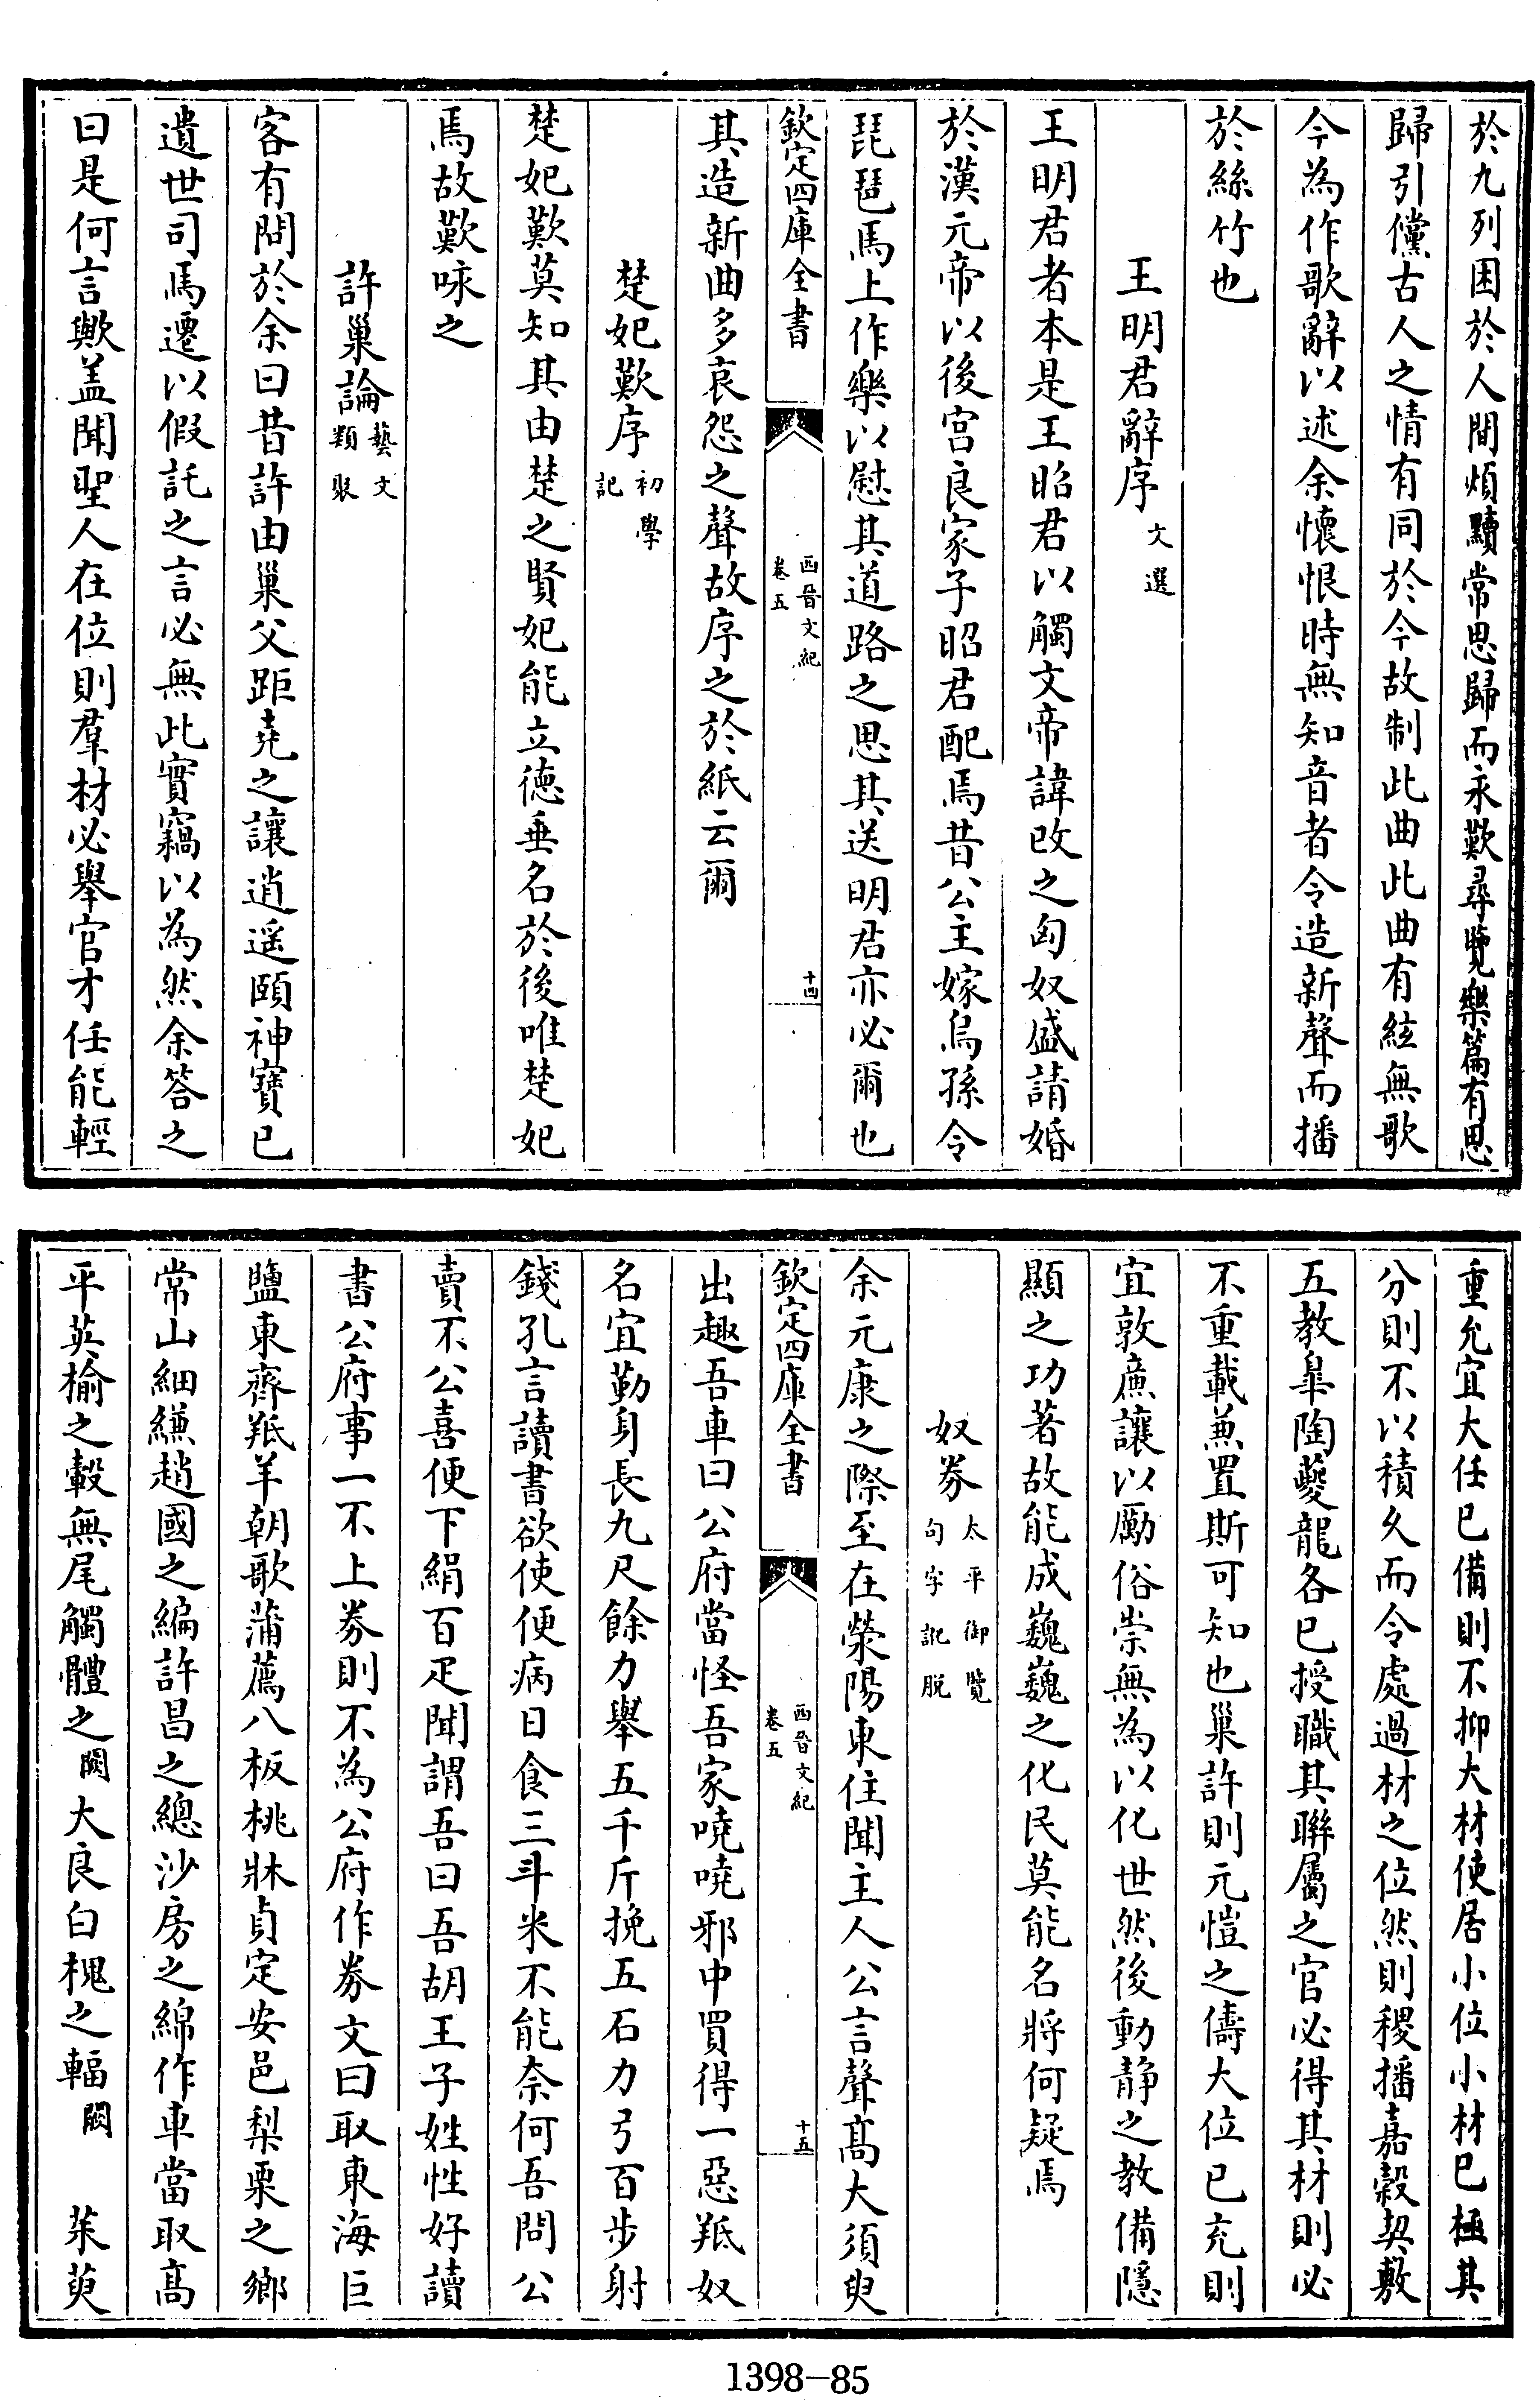 於九列困於人間煩黷常思歸而永歎尋覽樂篇有思
歸引儻古人之情有同於今故制此曲此曲有絃無歌
今為作歌辭以述余懷恨時無知音者令造新聲而播
於絲竹也
王明君辭序文選
王明君者本是王昭君以觸文帝諱改之匈奴盛請婚
於漢元帝以後宫良家子昭君配焉昔公主嫁烏孫令
琵琶馬上作樂以慰其道路之思其送明君亦必爾也
欽定四庫全書 西晉文紀 卷五 十四
其造新曲多哀怨之聲故序之於紙云爾
楚妃歎序初學記
楚妃歎莫知其由楚之賢妃能立徳垂名於後唯楚妃
焉故歎咏之
許巢論藝文類聚
客有問於余曰昔許由巢父距堯之讓逍遥頤神寶已
遺世司馬遷以假託之言必無此實竊以為然余答之
曰是何言歟盖聞聖人在位則羣材必舉官才任能輕
重允宜大任已備則不抑大材使居小位小材已極其
分則不以積久而令處過材之位然則稷播嘉榖契敷
五教臯陶夔龍各已授職其聯屬之官必得其材則必
不重載兼置斯可知也巢許則元愷之儔大位已充則
宜敦亷讓以勵俗崇無為以化世然後動静之教備隱
顯之功著故能成巍巍之化民莫能名將何疑焉
奴劵太平御覽句字訛脱
余元康之際至在滎陽東住聞主人公言聲髙大須臾
欽定四庫全書 西晉文紀 卷五 十五
出趣吾車曰公府當怪吾家嘵嘵邪中買得一惡羝奴
名宜勤身長九尺餘力舉五千斤挽五石力弓百步射
錢孔言讀書欲使便病日食三斗米不能奈何吾問公
賣不公喜便下絹百疋聞謂吾曰吾胡王子姓性好讀
書公府事一不上劵則不為公府作劵文曰取東海巨
鹽東齊羝羊朝歌蒲薦八板桃牀貞定安邑梨栗之鄉
常山細縑趙國之編許昌之總沙房之綿作車當取髙
平英榆之轂無尾觸體之闕大良白槐之輻闕 茱萸
1398-85